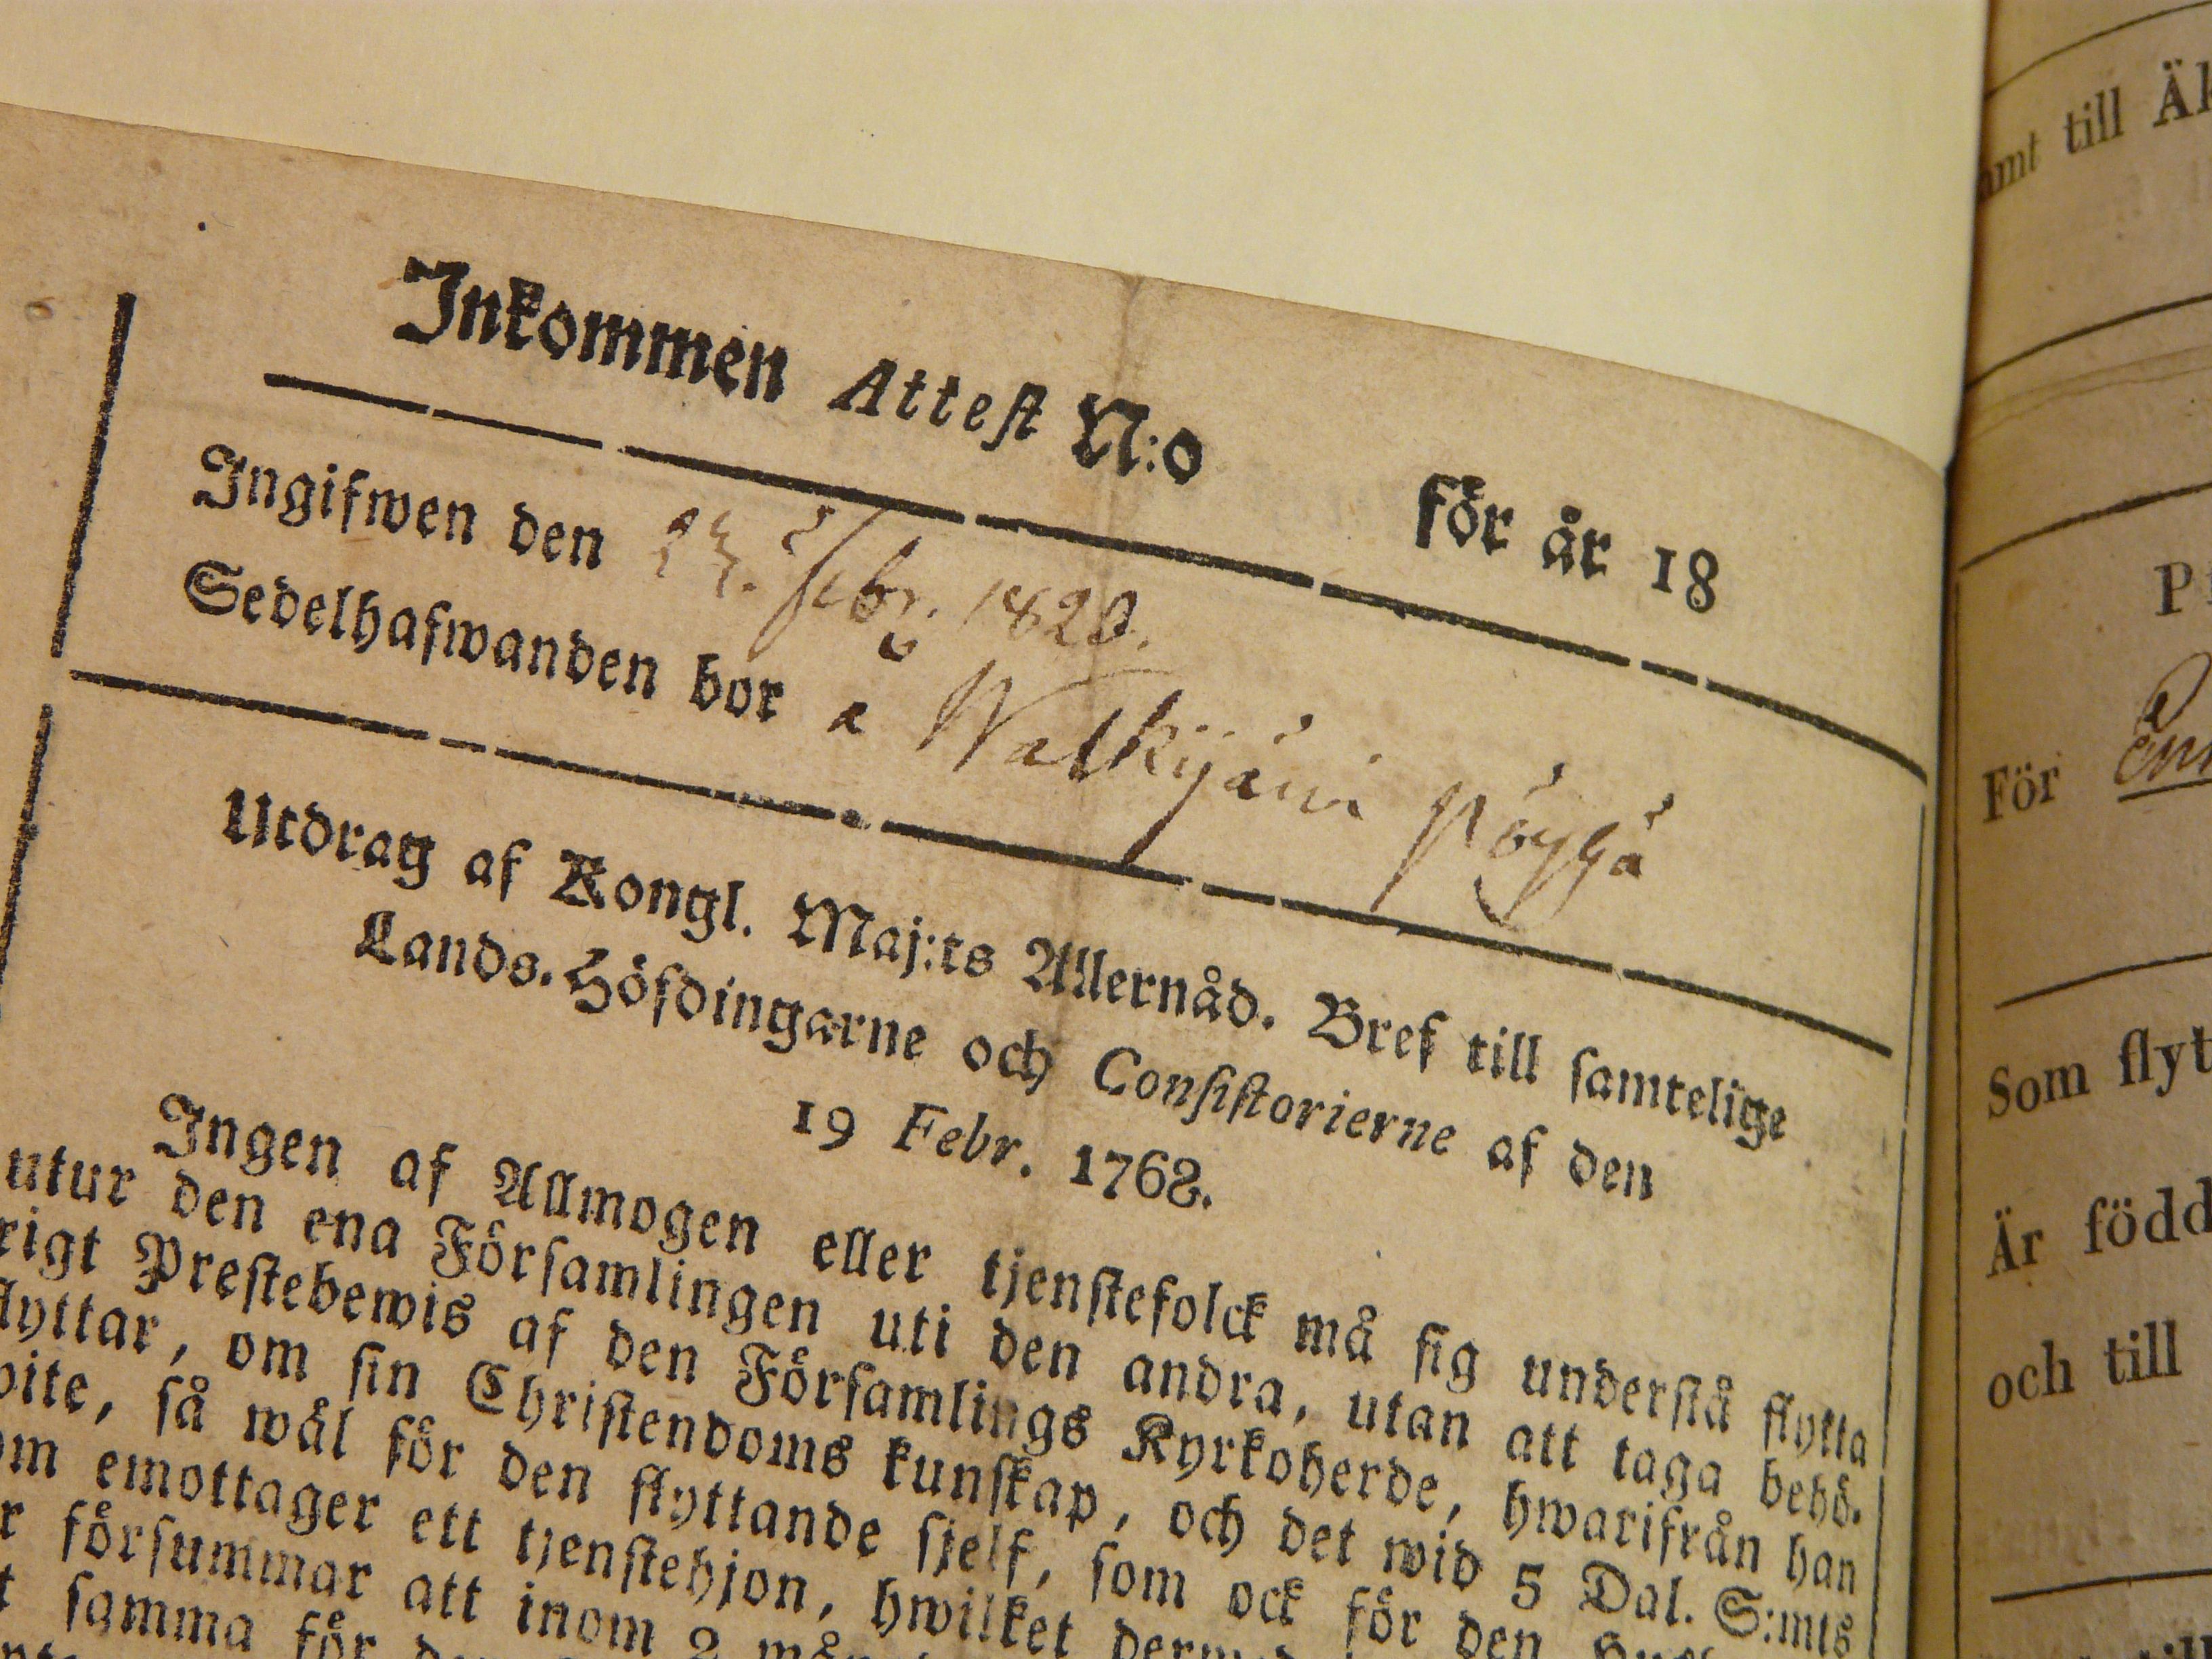 Inkommen Attest N:o för år 18
Ingifwen den 23. Febr. 1820.
Sedelhafwanden bor a Walkijärvi Pöyhä
Utdrag af Kongl. Maj:ts Allernåd. Bref till samtelige
Lands-Höfdingarne och Consistorierne af den
19 Febr. 1768.
Ingen af Allmogen eller tjenstefolck må sig understå flytta
utur den ena Församlingen uti den andra, utan att taga behö-
rigt Prestebewis af den Församlings Kyrkoherde, hwarifrån han
flyttar, om sin Christendoms kunskap, och det wid 5 Dal. S:mts
wite, så wäl för den flyttande sjelf, som ock för den
om emottager ett tjenstehjon, hwilket
r försummar att inom 2
t samma för
amt till
För
Som flyt
Är född
och till